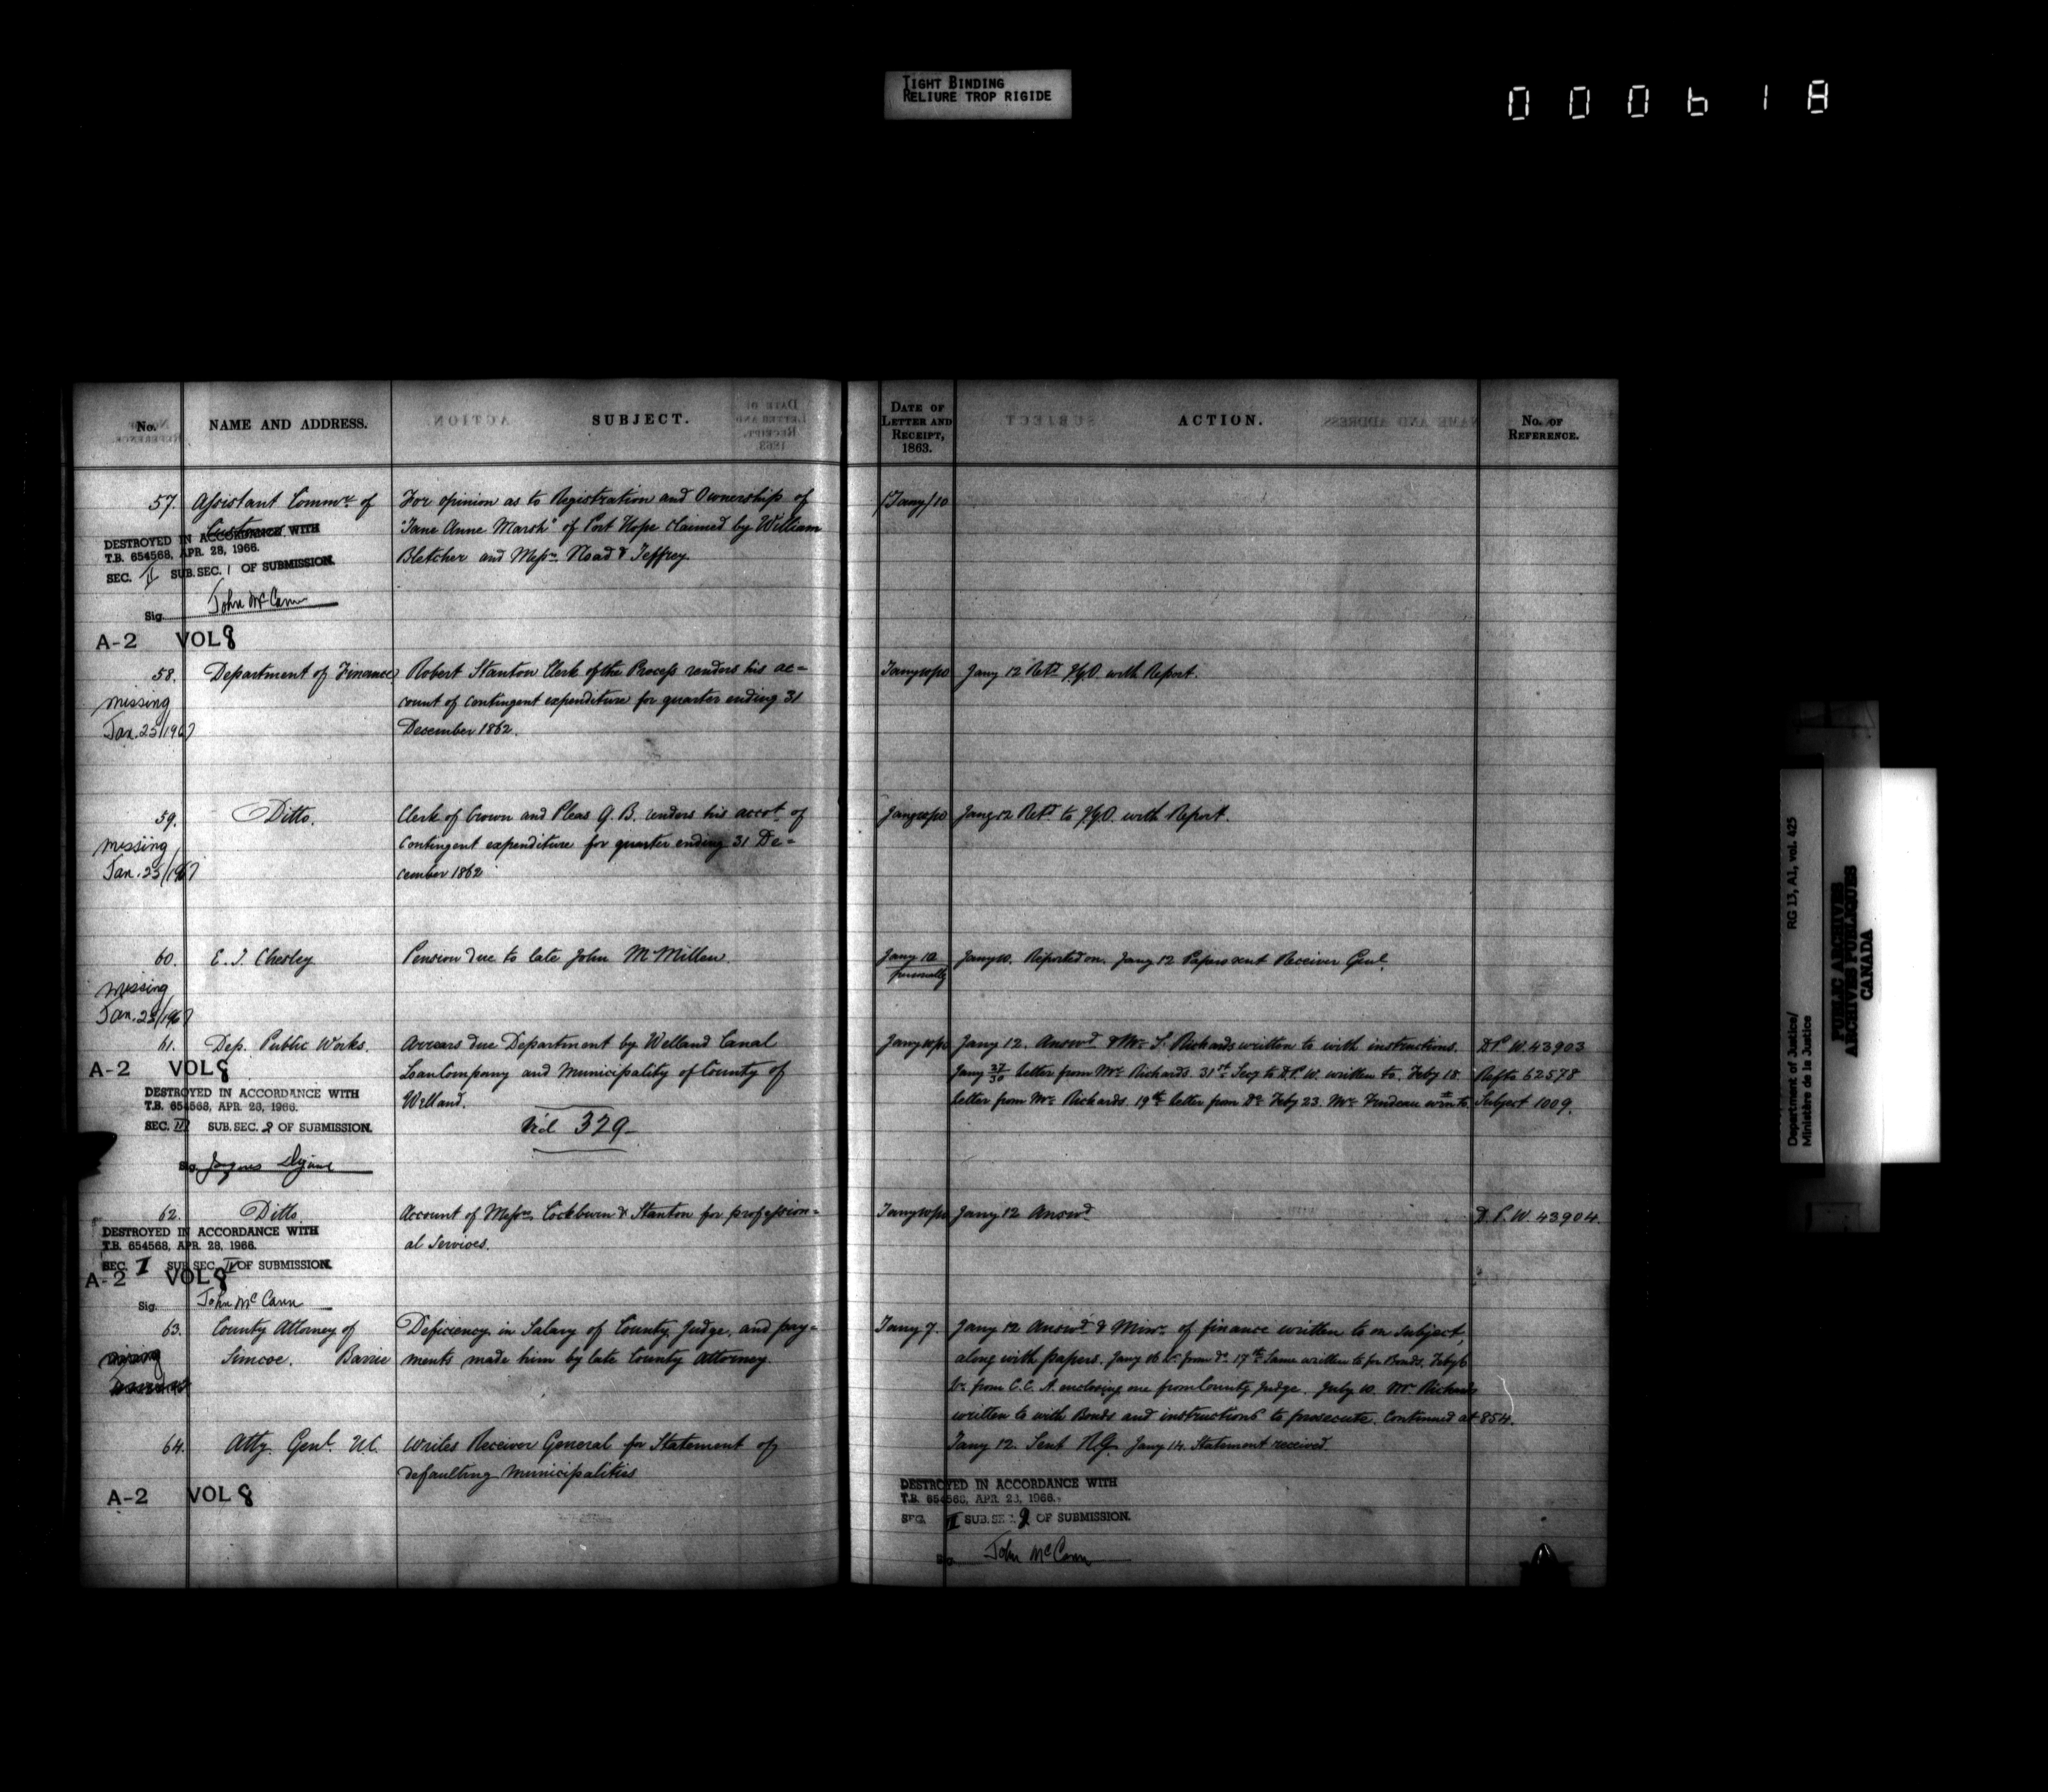 TIGHT BINDING
RELIURE TROP RIGIDE
000618
No.
NAME AND ADDRESS.
SUBJECT.
DATE OF
LETTER AND
RECEIPT,
1863.
ACTION.
No. OF
REFERENCE.
57. Assistant Commr. of
Customs
For opinion as to Registration and Ownership of
"Jane Anne Marsh" of Port Hope claimed by William
Bletcher and Messrs. Noad & Jeffrey
Jany 10
DESTROYED IN ACCORDANCE WITH
T.B. 654568, APR. 28, 1966.
SEC. II SUB. SEC. 1 OF SUBMISSION.
Sig. John McCann
A-2 VOL 8
58. Department of Finance
Robert Stanton Clerk of the Process renders his ac=
count of contingent expenditure for quarter ending 31
December 1862.
Jany 10/10
Jany 12 Retd. with Report.
missing
Jan. 25/1967
59. Ditto.
Clerk of Crown and Pleas Q. B. renders his accot. of
Contingent expenditure for quarter ending 31 De=
cember 1862
Jany 12 Retd. to with Report.
missing
Jan. 25/1967
60. E. J. Chesley
Pension due to late John McMillen.
Jany 10
personally
Jany 10. Reported on. Jany 12 Papers sent Receiver Genl.
missing
Jan. 25/1967
61. Dep. Public Works.
Arrears due Department by Welland Canal
Loan Company and Municipality of County of
Welland.
Vid 329
Jany 12. Answd. & Mr. S. Richards written to with instructions.
Jany 27/30 letter from Mr. Richards. 31st. Secy to D.P.W. written to. Feby 18
letter from Mr. Richards. 19th. letter from Do. Feby 23. Mr. Trudeau to
D.P.W. 43903
Refts 62578
Subject 1009.
A-2 VOL 8
DESTROYED IN ACCORDANCE WITH
T.B. 654568, APR. 28, 1966.
SEC. III SUB. SEC. 2 OF SUBMISSION.
Sig.
62. Ditto
Account of Messrs. Cockburn & Stanton for profession=
al Services.
Jany 12 Answd.
D.P.W. 43904.
DESTROYED IN ACCORDANCE WITH
T.B. 654568, APR. 28, 1966.
SEC. I SUB. SEC. IV OF SUBMISSION.
A-2 VOL 8
Sig. John McCann
63. County Attorney of
Simcoe. Barrie
Deficiency in Salary of County Judge, and pay=
ments made him by late County Attorney.
Jany 7.
Jany 12 Answd. & Minr. of finance written to on subject,
along with papers. Jany 16 Lr. from do. 17th. Same written to for Bonds. Feby 6
Lr. from C. C. A. enclosing one from County Judge. July 10. Mr. Richards
written to with Bonds and instructions to prosecute. Continued at 854.
missing
64. Atty. Genl. U.C.
Writes Receiver General for Statement of
defaulting Municipalities
Jany 12. Sent R.G. Jany 14. Statement received
A-2 VOL 8
DESTROYED IN ACCORDANCE WITH
T.B. 654568, APR. 28, 1966.
SEC. II SUB. SEC. 2 OF SUBMISSION.
Sig. John McCann
Department of Justice/
Ministère de la Justice
RG 13, A1, vol. 425
PUBLIC ARCHIVES
ARCHIVES PUBLIQUES
CANADA